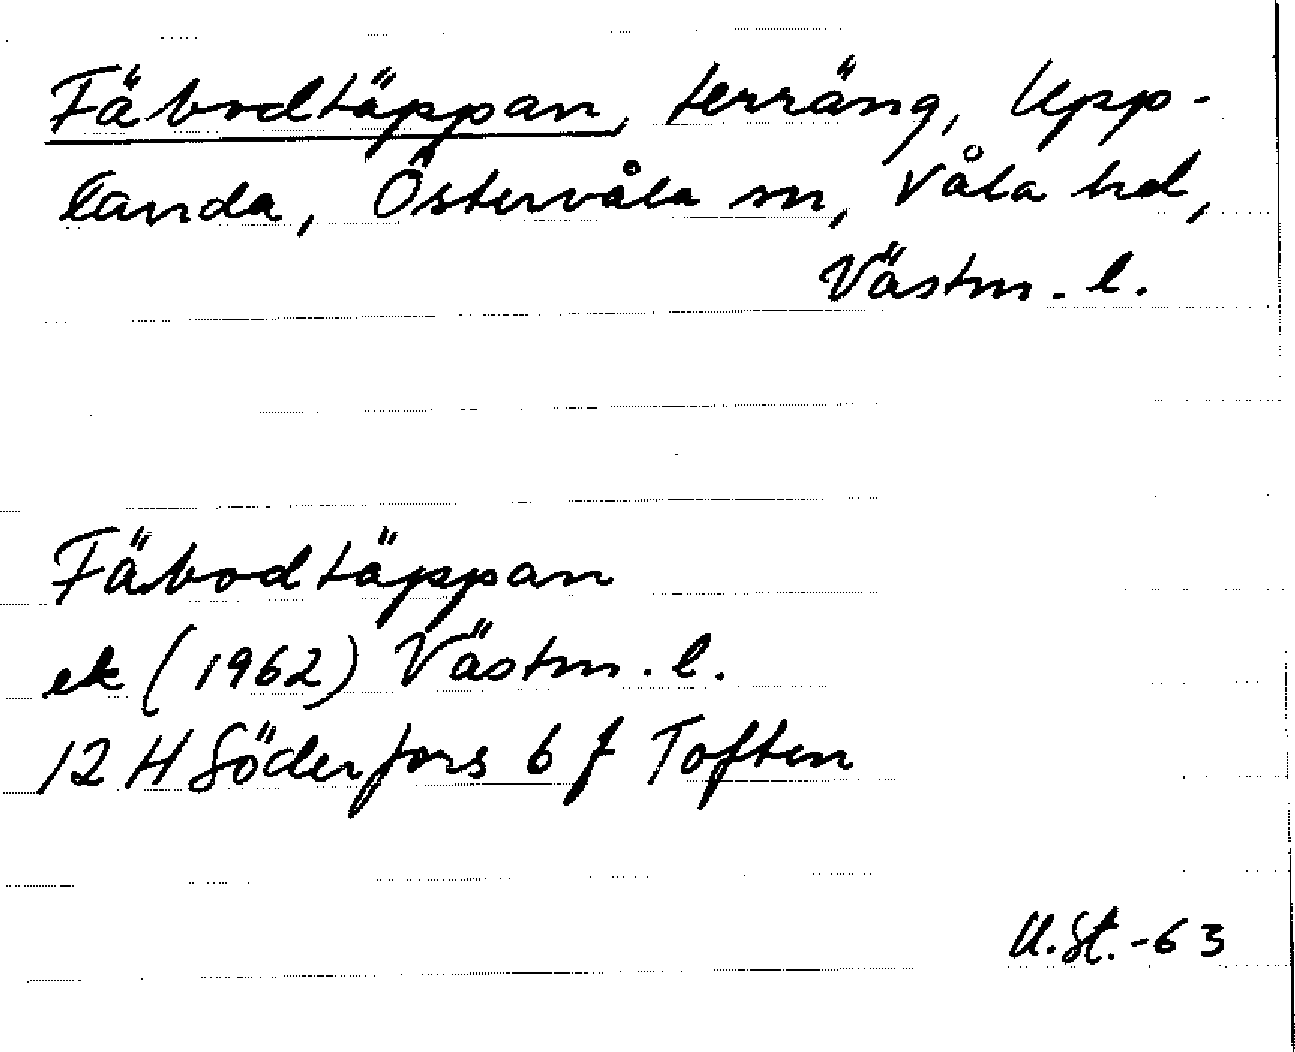 Fäbodtäppan, terräng, Upp-
landa, Östervåla sn, Våla hd,
Västm. l.
Fäbodtäppan
ek (1962) Västm. l.
12 H Söderfors 6 f Toften
U. St. -63